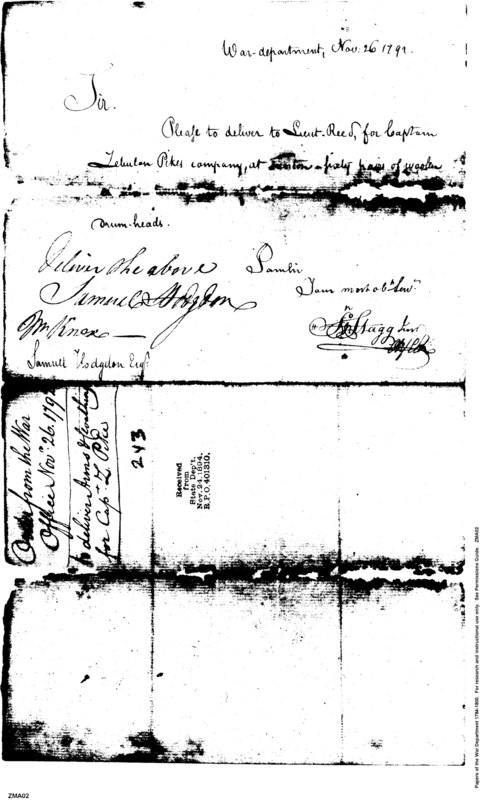 War-department, Nov: 26 1792.
Sir.
Please to deliver to Lieut. Reed, for Captain
Zebulon Pikes company, at sixty pairs of woolen
Drum-heads.
Deliver the above
Samuel Hodgdon
Mr Knox
I am Sir
Your most obt Servt
Jno Stagg Junr
Samuel Hodgdon Esqr
Order from the War
Office Novr 26. 1792
to deliver Arms & Cloathing
for Capt Z. Pike
243
Received
from
State Dep't.
Nov. 24. 1894.
R.P.O. 401310.
Papers of the War Department 1784-1800. For research and instructional use only. See Permissions Guide. ZMA02
ZMA02